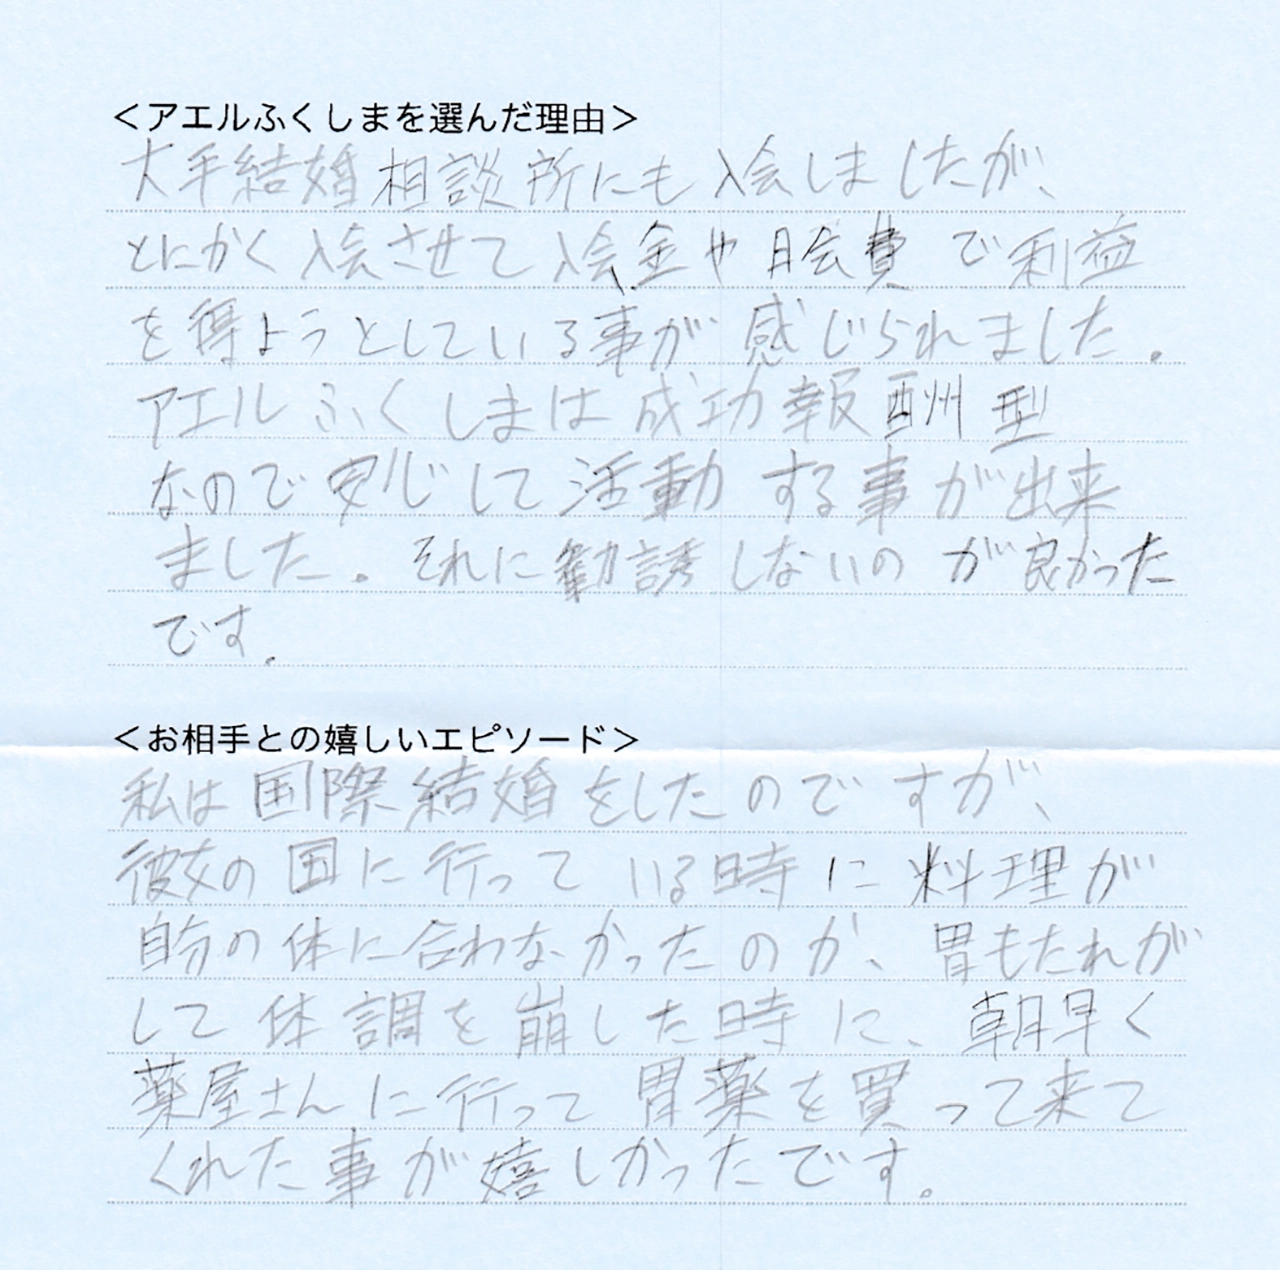 ＜アエルふくしまを選んだ理由＞
大手結婚相談所にも入会しましたが、
とにかく入会させて入会金や月会費で利益
を得ようとしている事が感じられました。
アエルふくしまは成功報酬型
なので安心して活動する事が出来
ました。それに勧誘しないのが良かった
です。
＜お相手との嬉しいエピソード＞
私は国際結婚をしたのですが、
彼女の国に行っている時に料理が
自分の体に合わなかったのか、胃もたれが
して体調を崩した時に、朝早く
薬屋さんに行って胃薬を買って来て
くれた事が嬉しかったです。